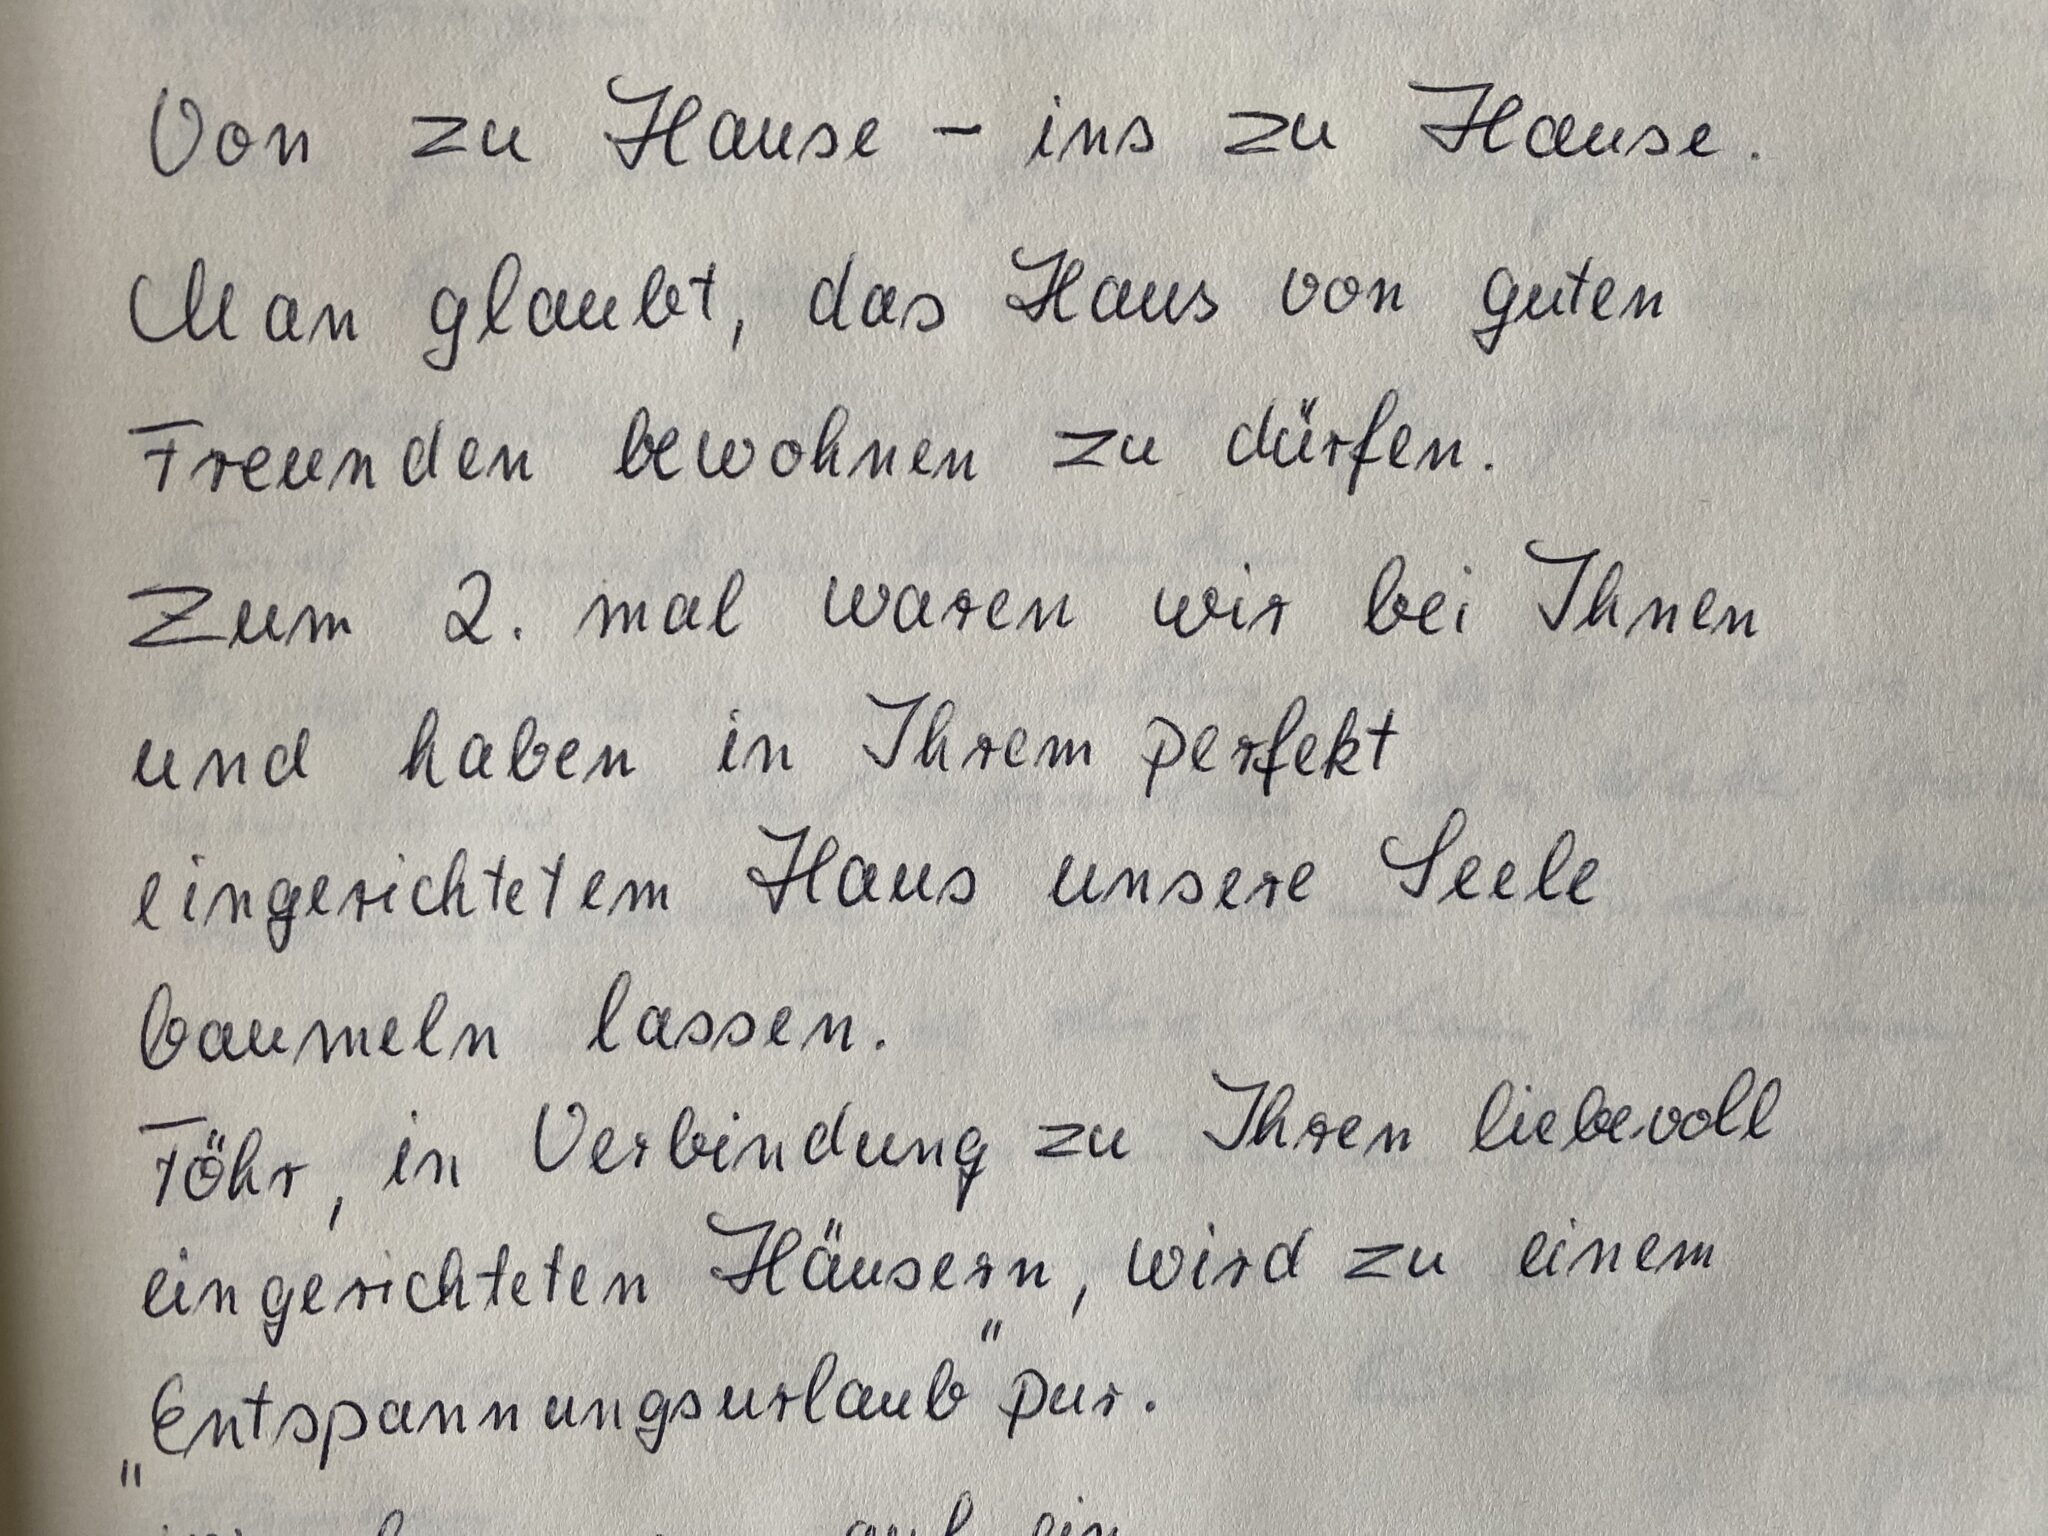 Von zu Hause - ins zu Hause.
Man glaubt, das Haus von guten
Freunden bewohnen zu dürfen.
Zum 2. mal waren wir bei Ihnen
und haben in Ihrem perfekt
eingerichtetem Haus unsere Seele
baumeln lassen.
Föhr, in Verbindung zu Ihren liebevoll
eingerichteten Häusern, wird zu einem
„Entspannungsurlaub" pur.
auf ein